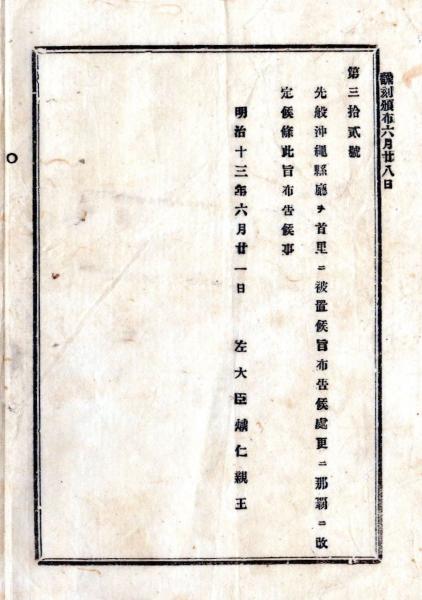 飜刻頒布六月廿八日
第三拾貳號
先般沖繩縣廳ヲ首里ニ被置候旨布告候處更ニ那覇ニ改
定候條此旨布告候事
明治十三年六月廿一日　左大臣熾仁親王